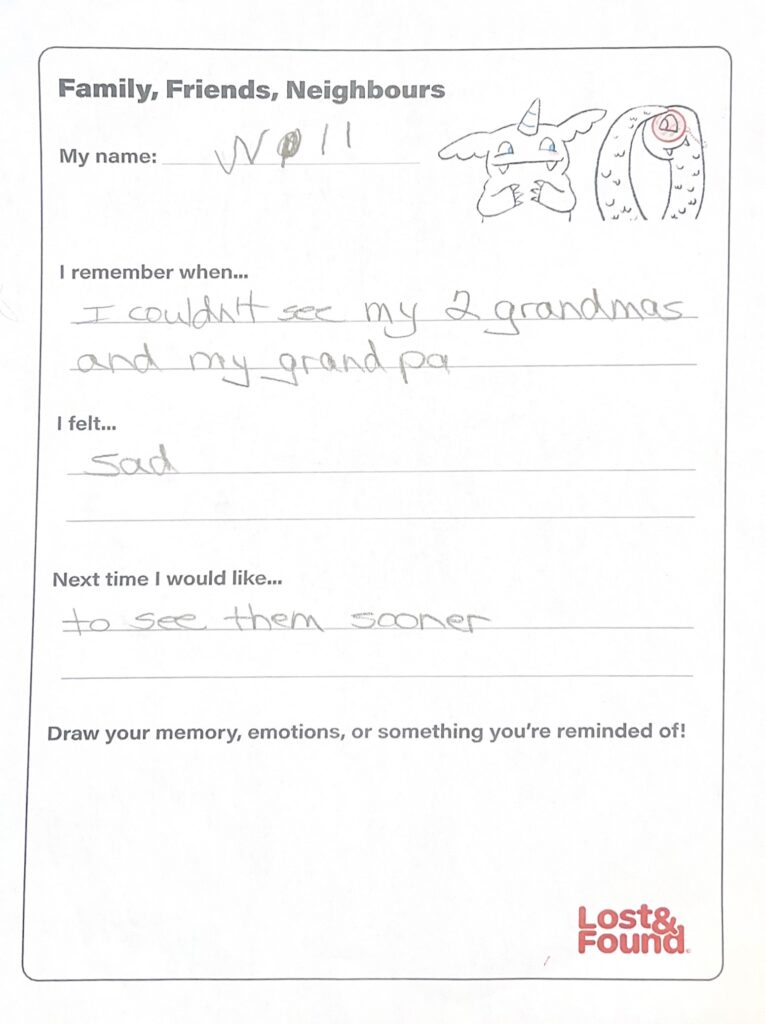 Family, Friends, Neighbours
My name:
I remember when...
I couldn't see my 2 grandmas
and my grandpa
I felt...
sad
Next time I would like...
to see them sooner
Draw your memory, emotions, or something you're reminded of!
Lost&
Found